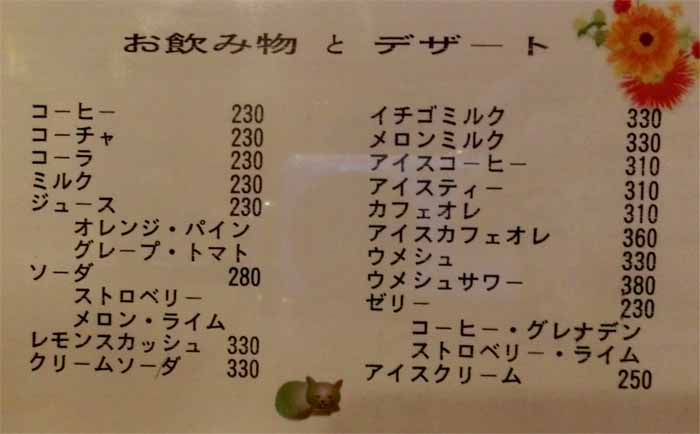 お飲み物 と デザート
コーヒー 230
コーチャ 230
コーラ 230
ミルク 230
ジュース 230
オレンジ・パイン
グレープ・トマト
ソーダ 280
ストロベリー
メロン・ライム
レモンスカッシュ 330
クリームソーダ 330
イチゴミルク 330
メロンミルク 330
アイスコーヒー 310
アイスティー 310
カフェオレ 310
アイスカフェオレ 360
ウメシュ 330
ウメシュサワー 380
ゼリー 230
コーヒー・グレナデン
ストロベリー・ライム
アイスクリーム 250